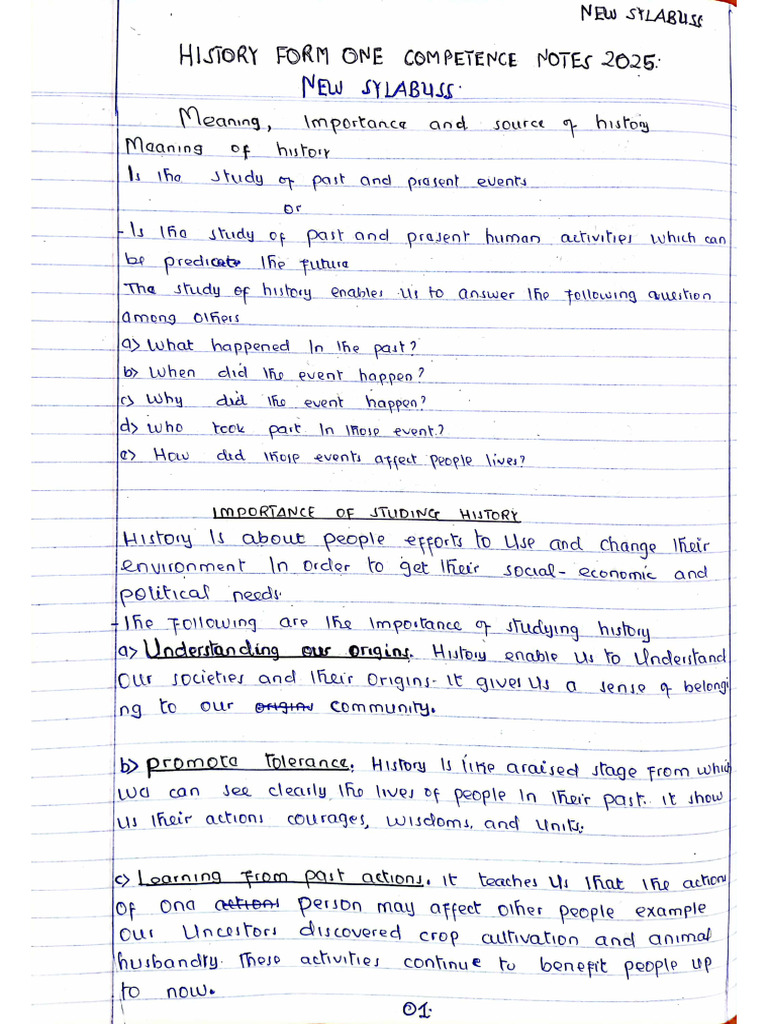 NEW SYLABUSS
HISTORY FORM ONE COMPETENCE NOTES 2025.
NEW SYLABUSS.
Meaning, Importance and source of history
Meaning of history
Is the study of past and present events
or
-Is the study of past and present human activities which can
be predicate the future
The study of history enables us to answer the following question
among others
a> What happened In the past?
b> When did the event happen?
c> Why did the event happen?
d> who took part In those event?
e> How did those events affect people lives?
IMPORTANCE OF STUDING HISTORY
History Is about people efforts to Use and change their
environment In order to get their social-economic and
political needs.
-The following are the Importance of studying history
a> Understanding our origins. History enable us to Understand
Our societies and their origins. It gives us a sense of belongi
ng to our origins community.
b> promote tolerance. History Is like araised stage from which
we can see clearly the lives of people In their past. it show
us their actions courages, wisdoms, and Units.
c> Learning from past actions. It teaches us that the action
Of one actions person may affect other people example
our Uncestors discovered crop cultivation and animal
husbandry. These activities continue to benefit people up
to now.
01.